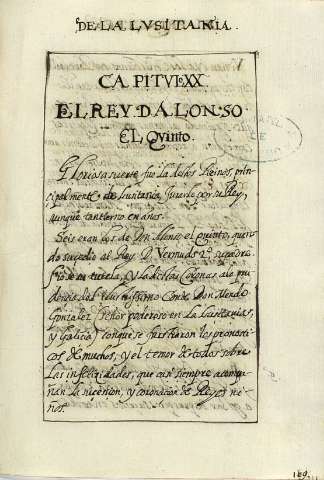 DE LA LVSITANIA.
CAPITVL XX.
EL REY D. ALONSO
EL Quinto.
Gloriosa suerte fue la destos Reinos, prin-
cipalmente de Luzitania, jurarle por su Rey,
aunque tan tierno en años.
Seis eran los de Don Alonso el quinto, quan-
do sucedio al Rey D. Vermudo 2º. su padre
en su tutela, y las dichas Coronas, a la pru-
dencia del Conde Don Mendo
Gonzalez señor poderoso en la Luzitania,
y Galicia, conque se frustraron los pronosti-
cos de muchos, y el temor de todos sobre
las infelicidades, que casi siempre acompa-
ñan la niñez, y coronacion de Reyes ni-
ños.
189.